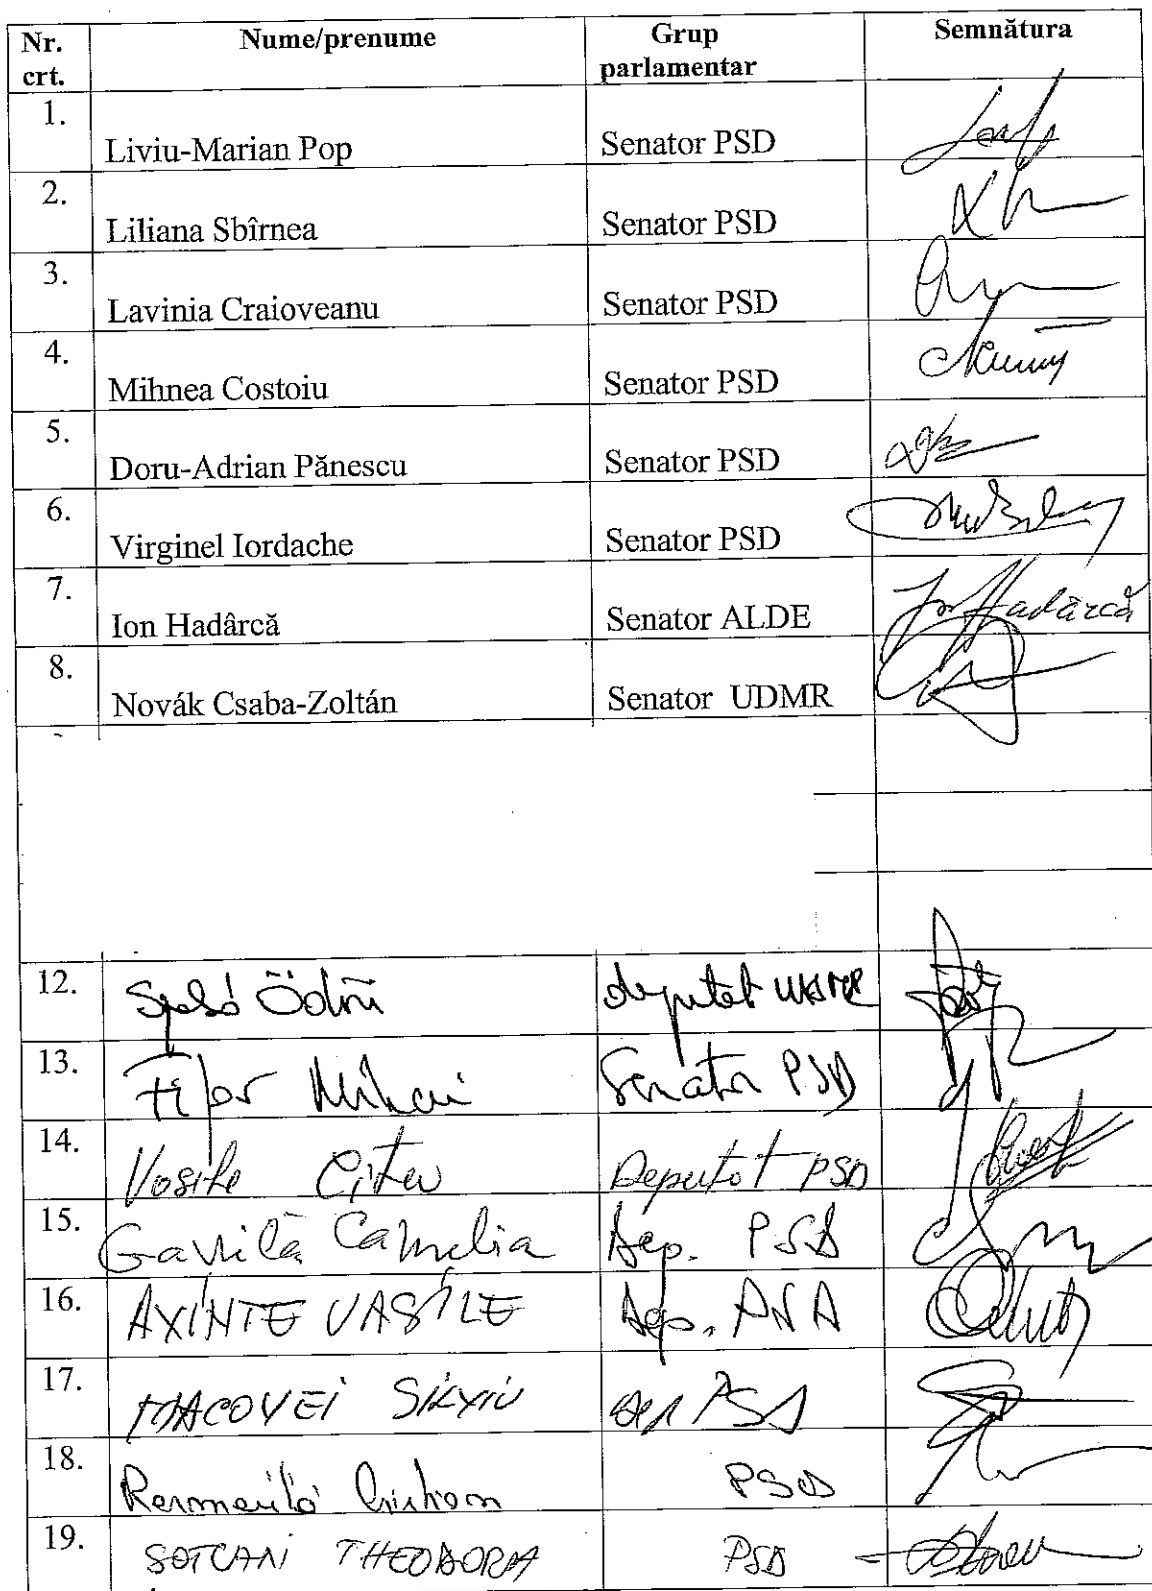 Nr. crt. Nume/prenume Grup parlamentar Semnătura
1. Liviu-Marian Pop Senator PSD
2. Liliana Sbîrnea Senator PSD
3. Lavinia Craioveanu Senator PSD
4. Mihnea Costoiu Senator PSD
5. Doru-Adrian Pănescu Senator PSD
6. Virginel Iordache Senator PSD
7. Ion Hadârcă Senator ALDE Ion Hadârcă
8. Novák Csaba-Zoltán Senator UDMR
12. deputat UDMR
13. Fifor Mihai Senator PSD
14. Vasile Cîtea Deputat PSD
15. Gavrilă Camelia Dep. PSD
16. AXINTE VASILE Dep.
17. MACOVEI SILVIU dep PSD
18. PSD
19. SOTCAN THEODORA PSD